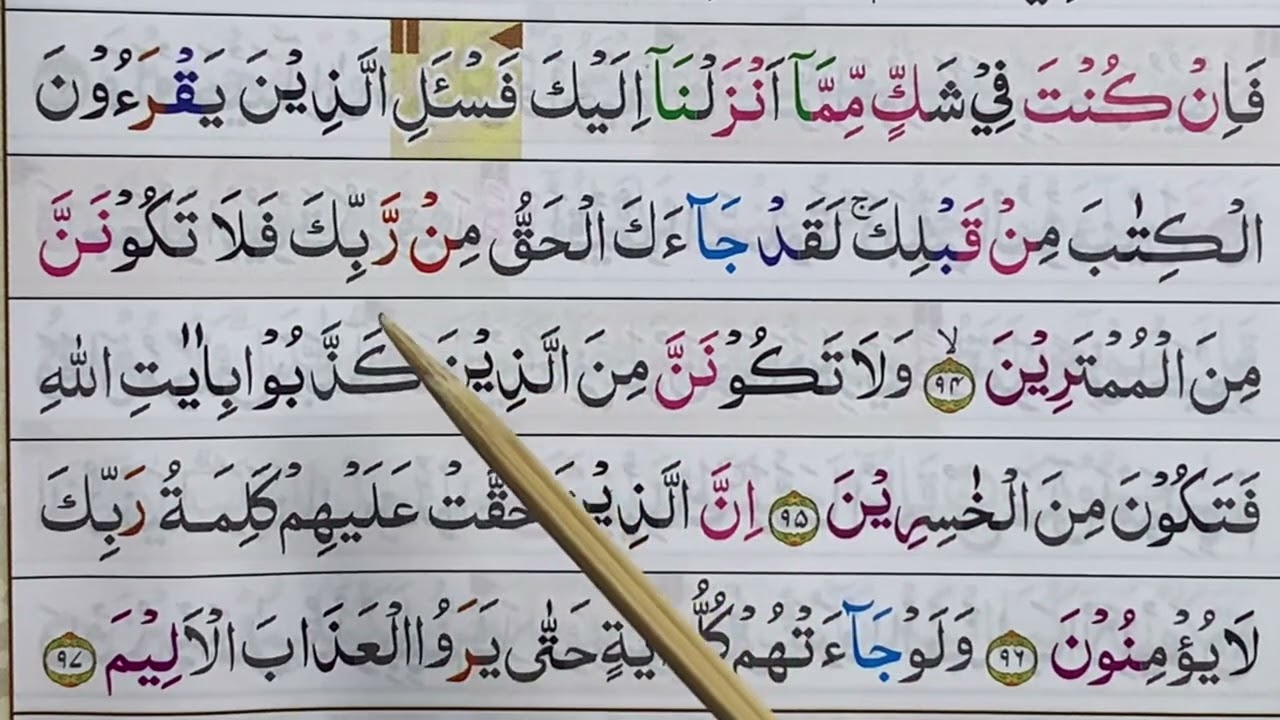 فَاِنْ كُنْتَ فِيْ شَكٍّ مِّمَّآ اَنْزَلْنَآ اِلَيْكَ فَسْـَٔلِ الَّذِيْنَ يَقْرَءُوْنَ
الْكِتٰبَ مِنْ قَبْلِكَ ۚ لَقَدْ جَآءَكَ الْحَقُّ مِنْ رَّبِّكَ فَلَا تَكُوْنَنَّ
مِنَ الْمُمْتَرِيْنَ ۙ ۹۴ وَلَا تَكُوْنَنَّ مِنَ الَّذِيْنَ كَذَّبُوْا بِاٰيٰتِ اللّٰهِ
فَتَكُوْنَ مِنَ الْخٰسِرِيْنَ ۹۵ اِنَّ الَّذِيْنَ حَقَّتْ عَلَيْهِمْ كَلِمَةُ رَبِّكَ
لَا يُؤْمِنُوْنَ ۹۶ وَلَوْ جَآءَتْهُمْ كُلُّ اٰيَةٍ حَتّٰى يَرَوُا الْعَذَابَ الْاَلِيْمَ ۹۷